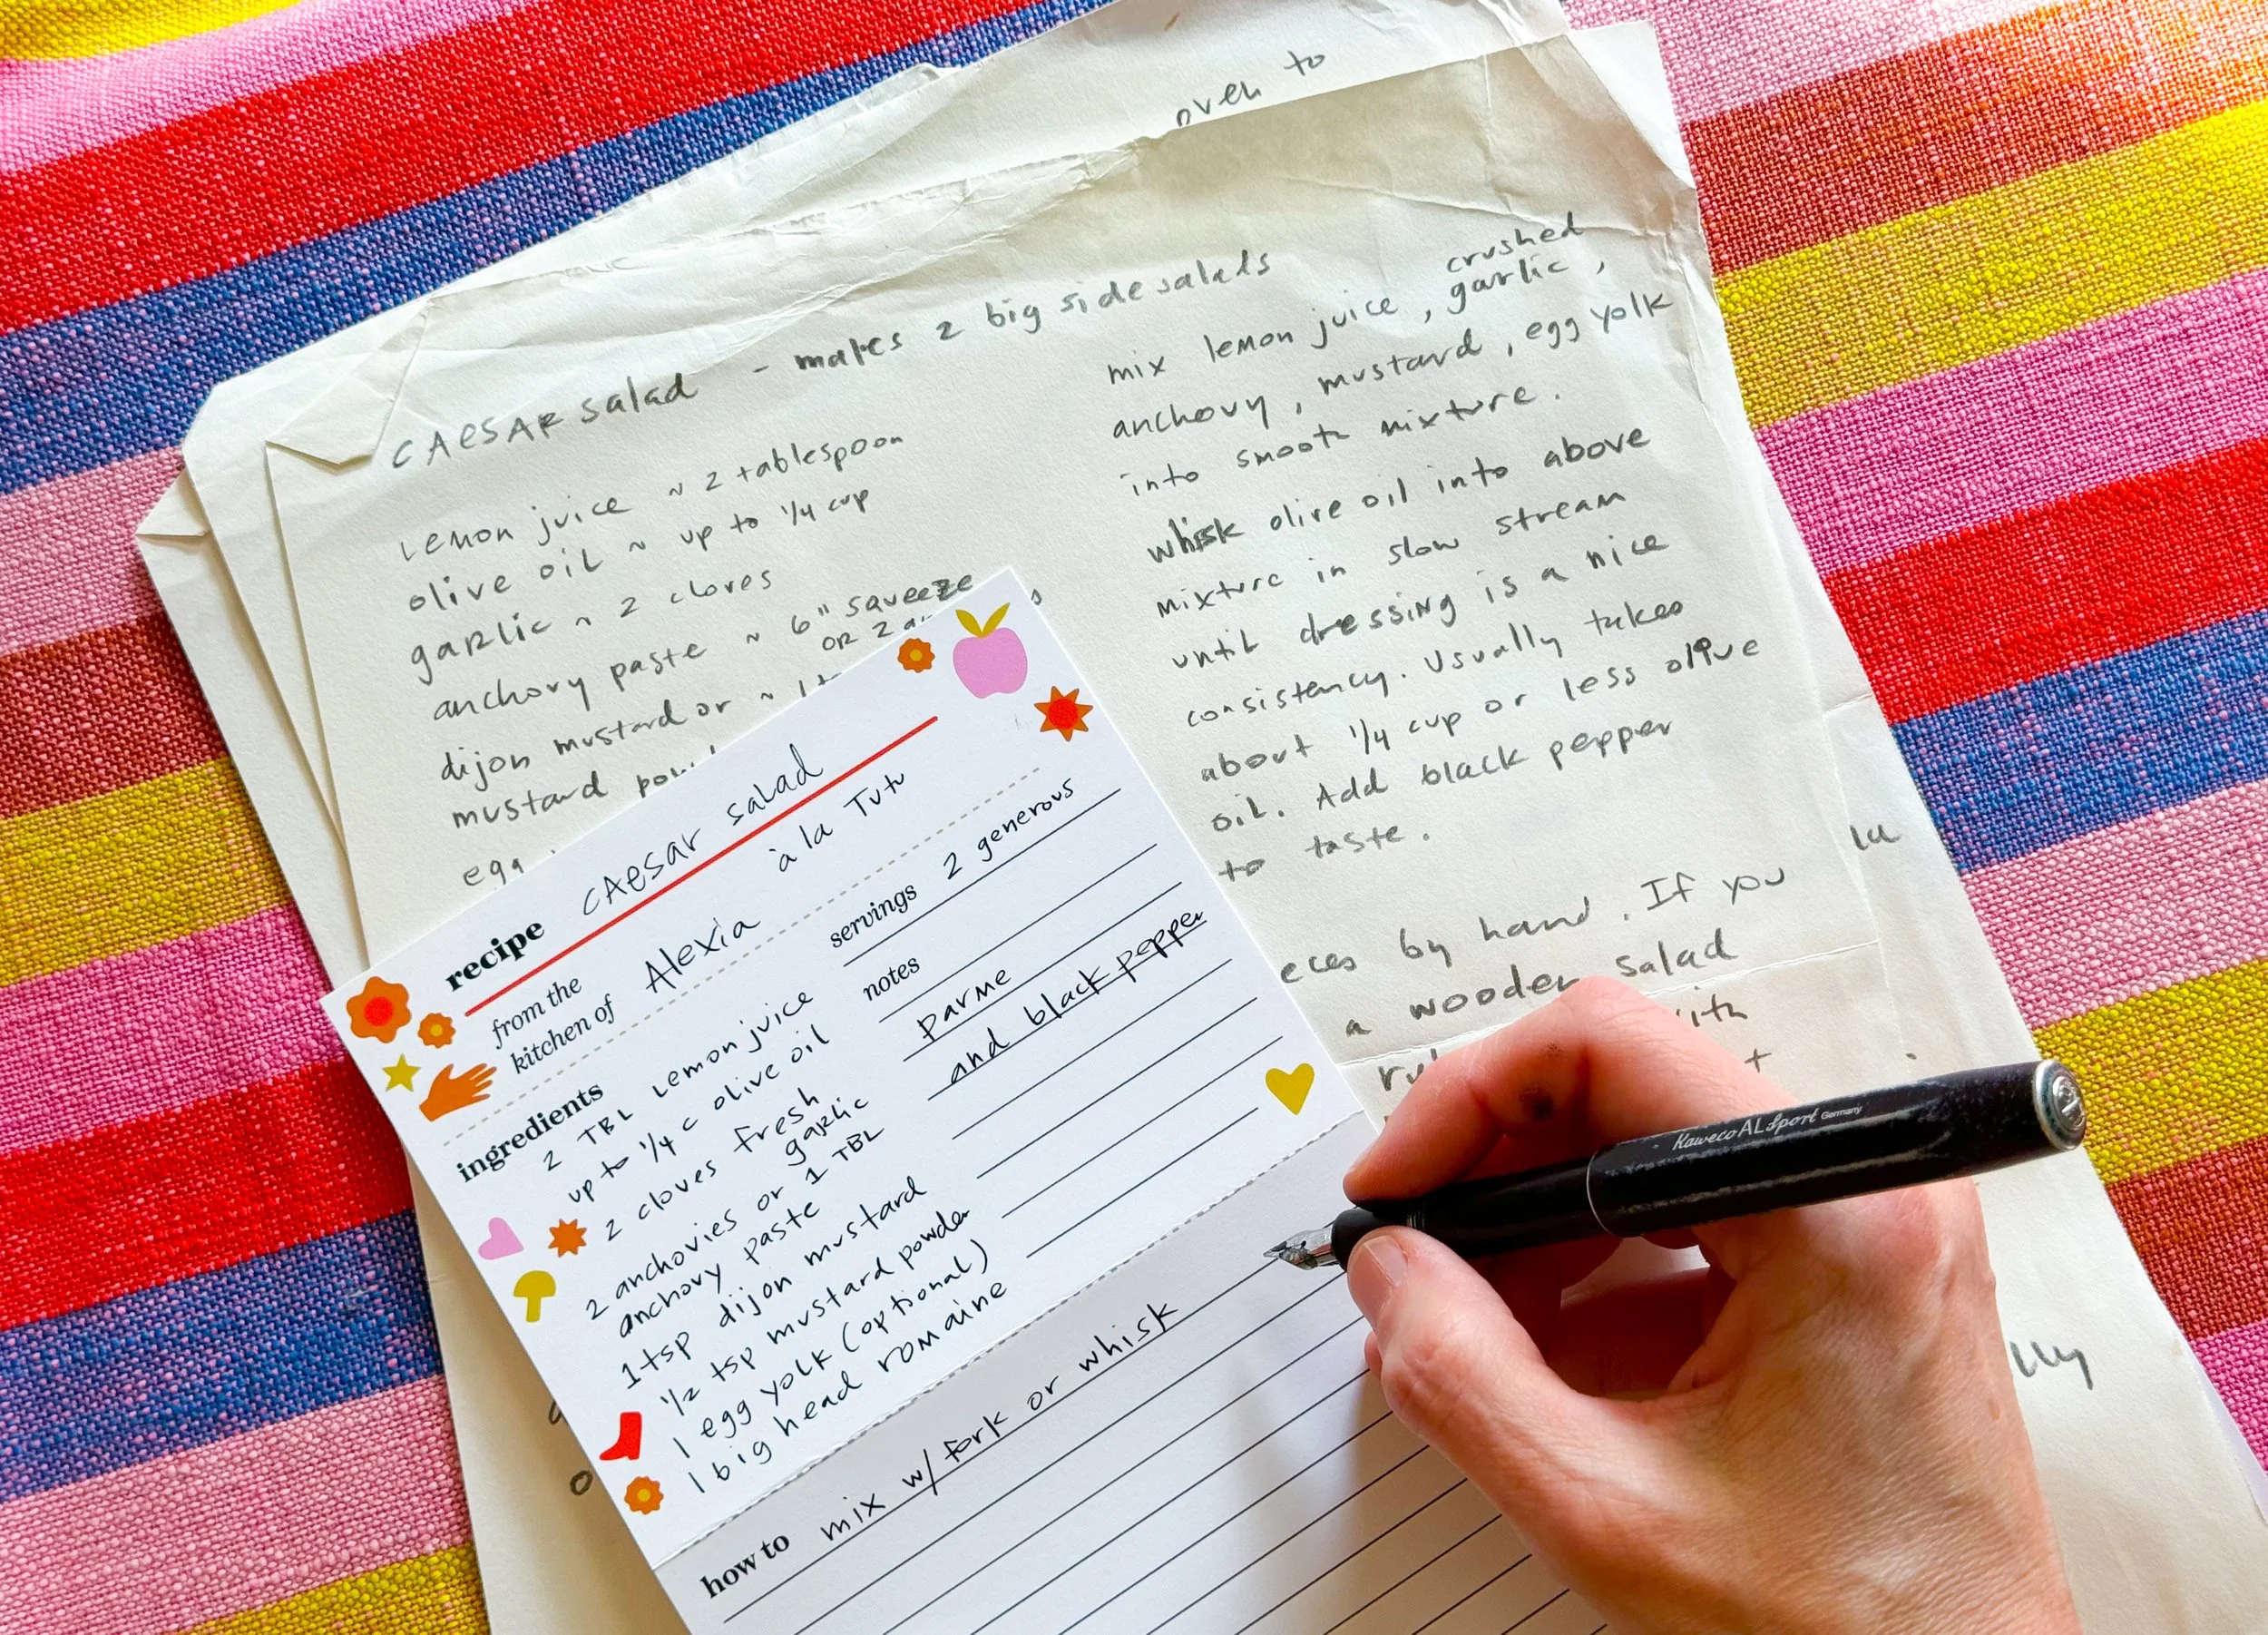 oven to
CAESAR salad - makes 2 big side salads
lemon juice ~ 2 tablespoon
olive oil ~ up to 1/4 cup
garlic ~ 2 cloves
anchovy paste ~ 6" squeeze
OR 2
dijon mustard or ~ 1
mustard
egg
crushed
mix lemon juice, garlic,
anchovy, mustard, egg yolk
into smooth mixture.
whisk olive oil into above
mixture in slow stream
until dressing is a nice
consistency. Usually takes
about 1/4 cup or less olive
oil. Add black pepper
to taste.
by hand. If you
a wooden salad
recipe CAesar salad
à la Tutu
from the
kitchen of Alexia
ingredients
2 TBL lemon juice
up to 1/4 c olive oil
2 cloves fresh
garlic
2 anchovies or 1 TBL
anchovy paste
1 tsp dijon mustard
1/2 tsp mustard powder
1 egg yolk (optional)
1 big head romaine
servings 2 generous
notes
parme
and black pepper
how to mix w/ fork or whisk
Kaweco AL Sport Germany